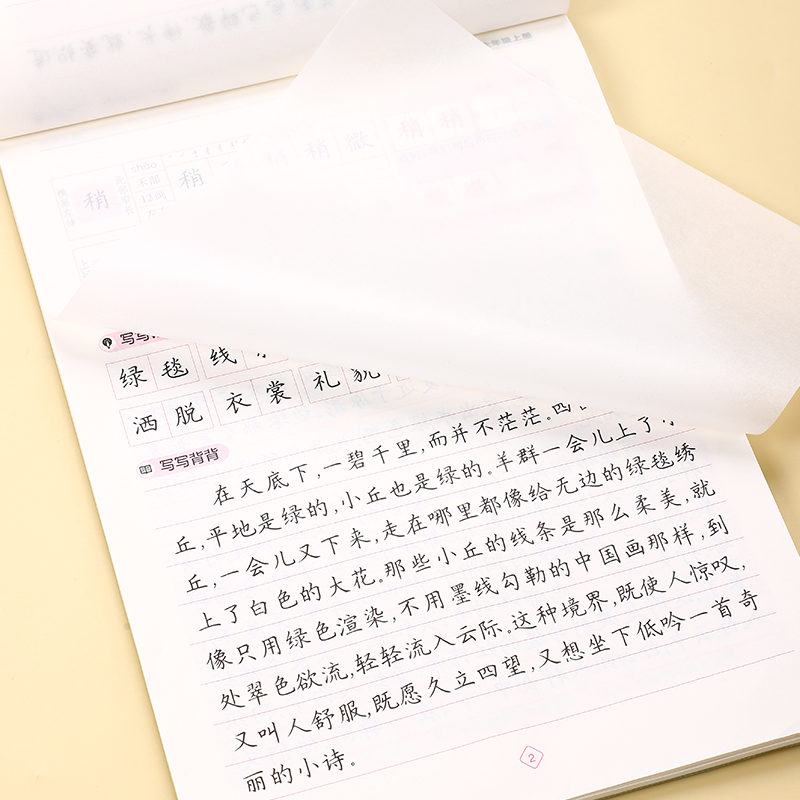 年级上册
shāo
稍
禾部
12画
稍
稍
微
稍
稍
写写
绿毯 线
洒脱 衣裳 礼貌
写写背背
在天底下,一碧千里,而并不茫茫。四
丘,平地是绿的,小丘也是绿的。羊群一会儿上了小
丘,一会儿又下来,走在哪里都像给无边的绿毯绣
上了白色的大花。那些小丘的线条是那么柔美,就
像只用绿色渲染,不用墨线勾勒的中国画那样,到
处翠色欲流,轻轻流入云际。这种境界,既使人惊叹,
又叫人舒服,既愿久立四望,又想坐下低吟一首奇
丽的小诗。
2